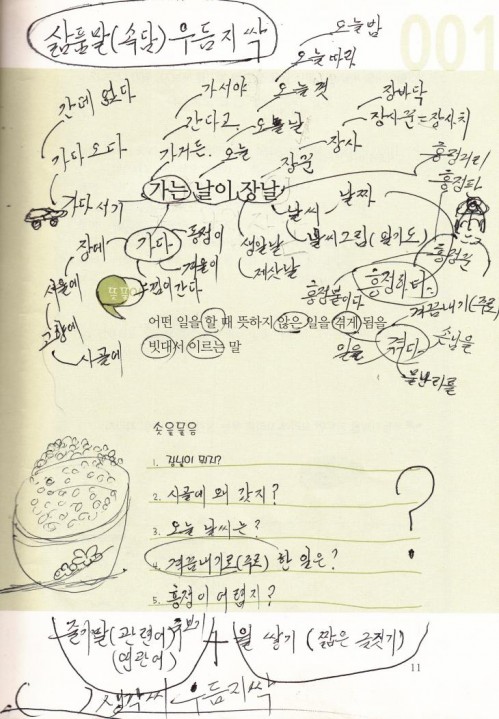 삶품말(속담) 우듬지 싹
001
오늘밤
오늘따라
오늘껏
오늘날
오늘
가서야
간다고
가거든
간데 없다
가다 오다
가다 서기
장바닥
장사꾼=장사치
장사
장꾼
흥정거리
흥정판
가는 날이 장날
날짜
날씨
날씨그림(일기도)
생일날
제삿날
흥정꾼
장에
가다
동정이
겨울이
서울에
고향에
시골에
흥정붙이다
흥정하다
겪끔내기(주로)
어떤 일을 할 때 뜻하지 않은 일을 겪게 됨을
빗대서 이르는 말
일을
겪다
손님을
물난리를
솟을물음
1. 장날이 뭐지?
2. 시골에 왜 갔지?
3. 오늘 날씨는?
4. 겪끔내기로(주로) 한 일은?
5. 흥정이 어렵지?
?
줄기말(관련어)
(연관어)
+
월 쌓기 (짧은 글짓기)
11
( ) 생각씨 우듬지싹